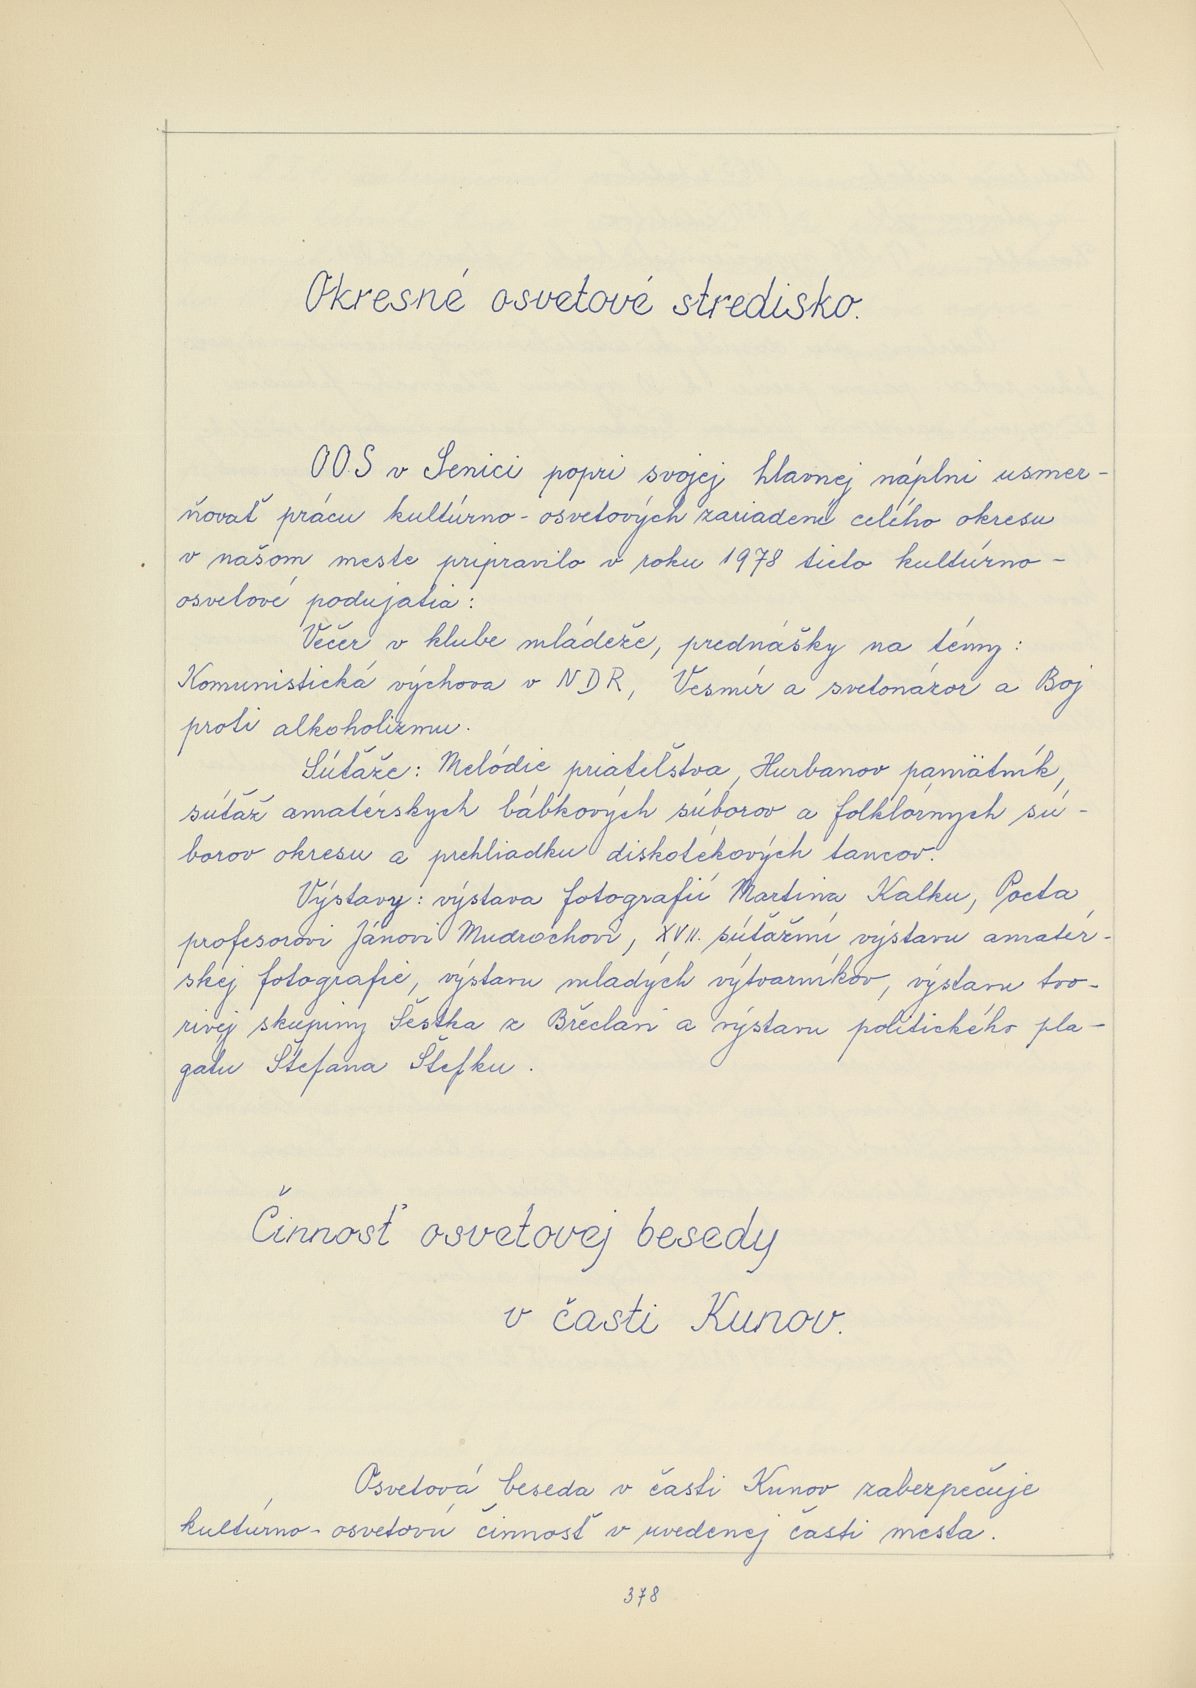 Okresné osvetové stredisko.
OOS v Senici popri svojej hlavnej náplni usmer-
ňovať prácu kultúrno-osvetových zariadení celého okresu
v našom meste pripravilo v roku 1978 tieto kultúrno-
osvetové podujatia:
Večer v klube mládeže, prednášky na témy:
Komunistická výchova v NDR, Vesmír a svetonázor a Boj
proti alkoholizmu.
Súťaže: Melódie priateľstva, Hurbanov pamätník,
súťaž amatérskych bábkových súborov a folklórnych sú-
borov okresu a prehliadku diskotékových tancov.
Výstavy: výstava fotografií Martina Kalku, Pocta
profesorovi Jánovi Mudrochovi, XVII. súťažnú výstavu amatér-
skej fotografie, výstavu mladých výtvarníkov, výstavu tvo-
rivej skupiny Šestka z Břeclavi a výstavu politického pla-
gatu Štefana Štefku.
Činnosť osvetovej besedy
v časti Kunov.
Osvetová beseda v časti Kunov zabezpečuje
kultúrno-osvetovú činnosť v uvedenej časti mesta.
378